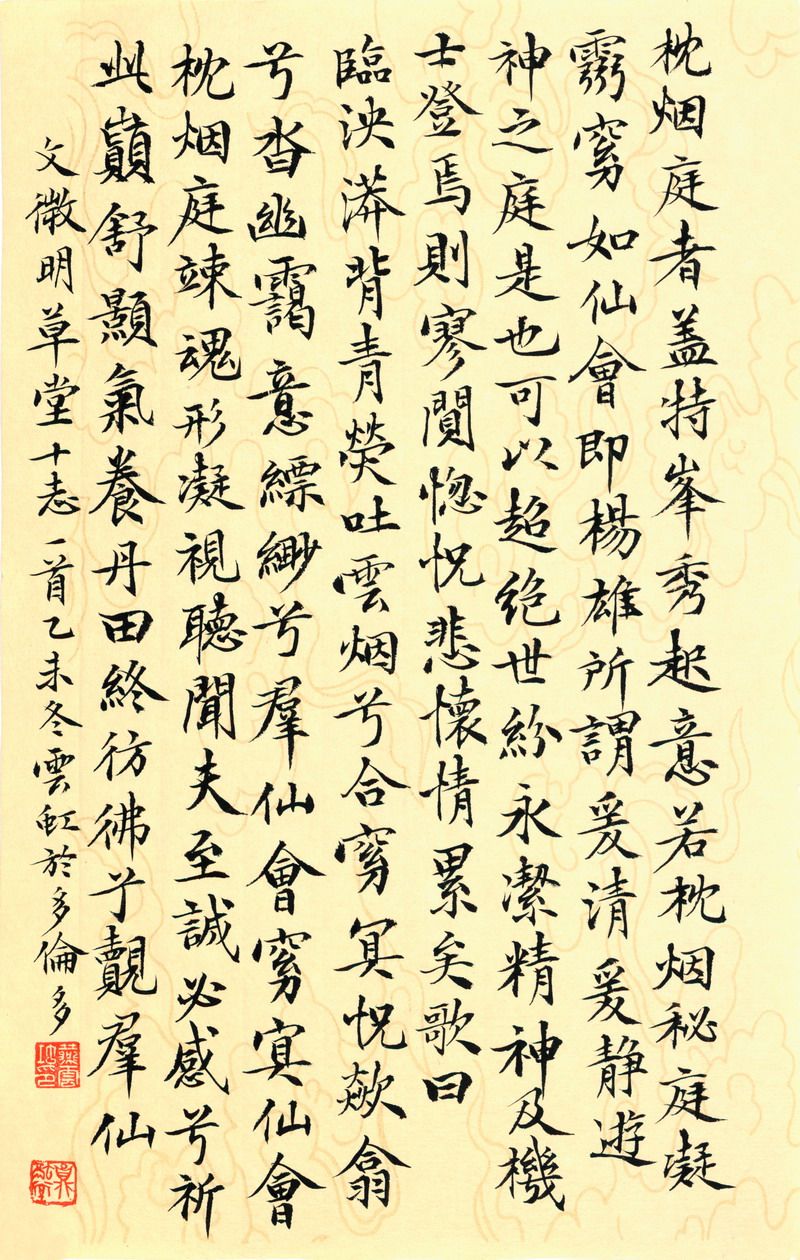 枕烟庭者盖特峯秀起意若枕烟秘庭凝
窈如仙會即楊雄所謂爰清爰静遊
神之庭是也可以超绝世紛永潔精神及機
士登焉則寥閴惚怳悲懷情累矣歌曰
臨泱漭背青熒吐雲烟兮合窈冥怳欻翕
兮沓幽靄意縹緲兮羣仙會窈冥仙會
枕烟庭竦魂形凝視聽聞夫至誠必感兮祈
此巔舒顯氣養丹田終彷彿兮覿羣仙
文徵明草堂十志一首乙未冬雲虹於多倫多